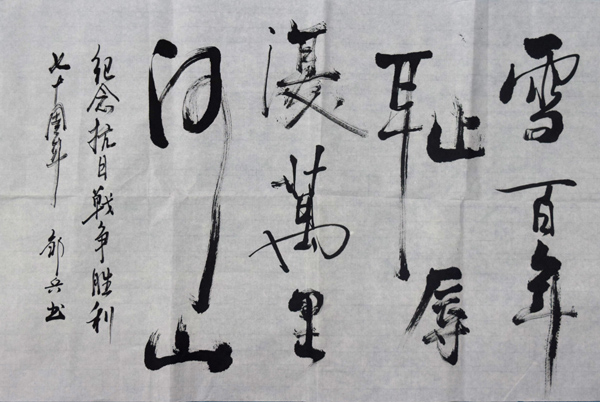 雪百年
耻辱
復萬里
河山
纪念抗日戰争胜利
七十周年 兵书